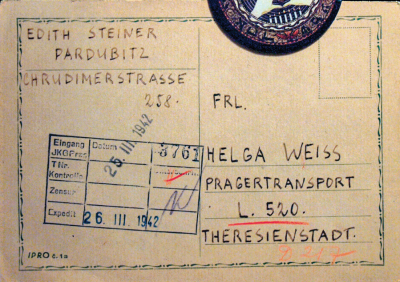 EDITH STEINER
PARDUBITZ
CHRUDIMERSTRASSE
258.
FRL.
HELGA WEISS
PRAGERTRANSPORT
L. 520.
THERESIENSTADT.
Eingang
JKGPrag
Datum
25. III. 1942
3761
T Nr.
Kontrolle
Zensur
Expedit
26. III. 1942
IPRO č. 1a